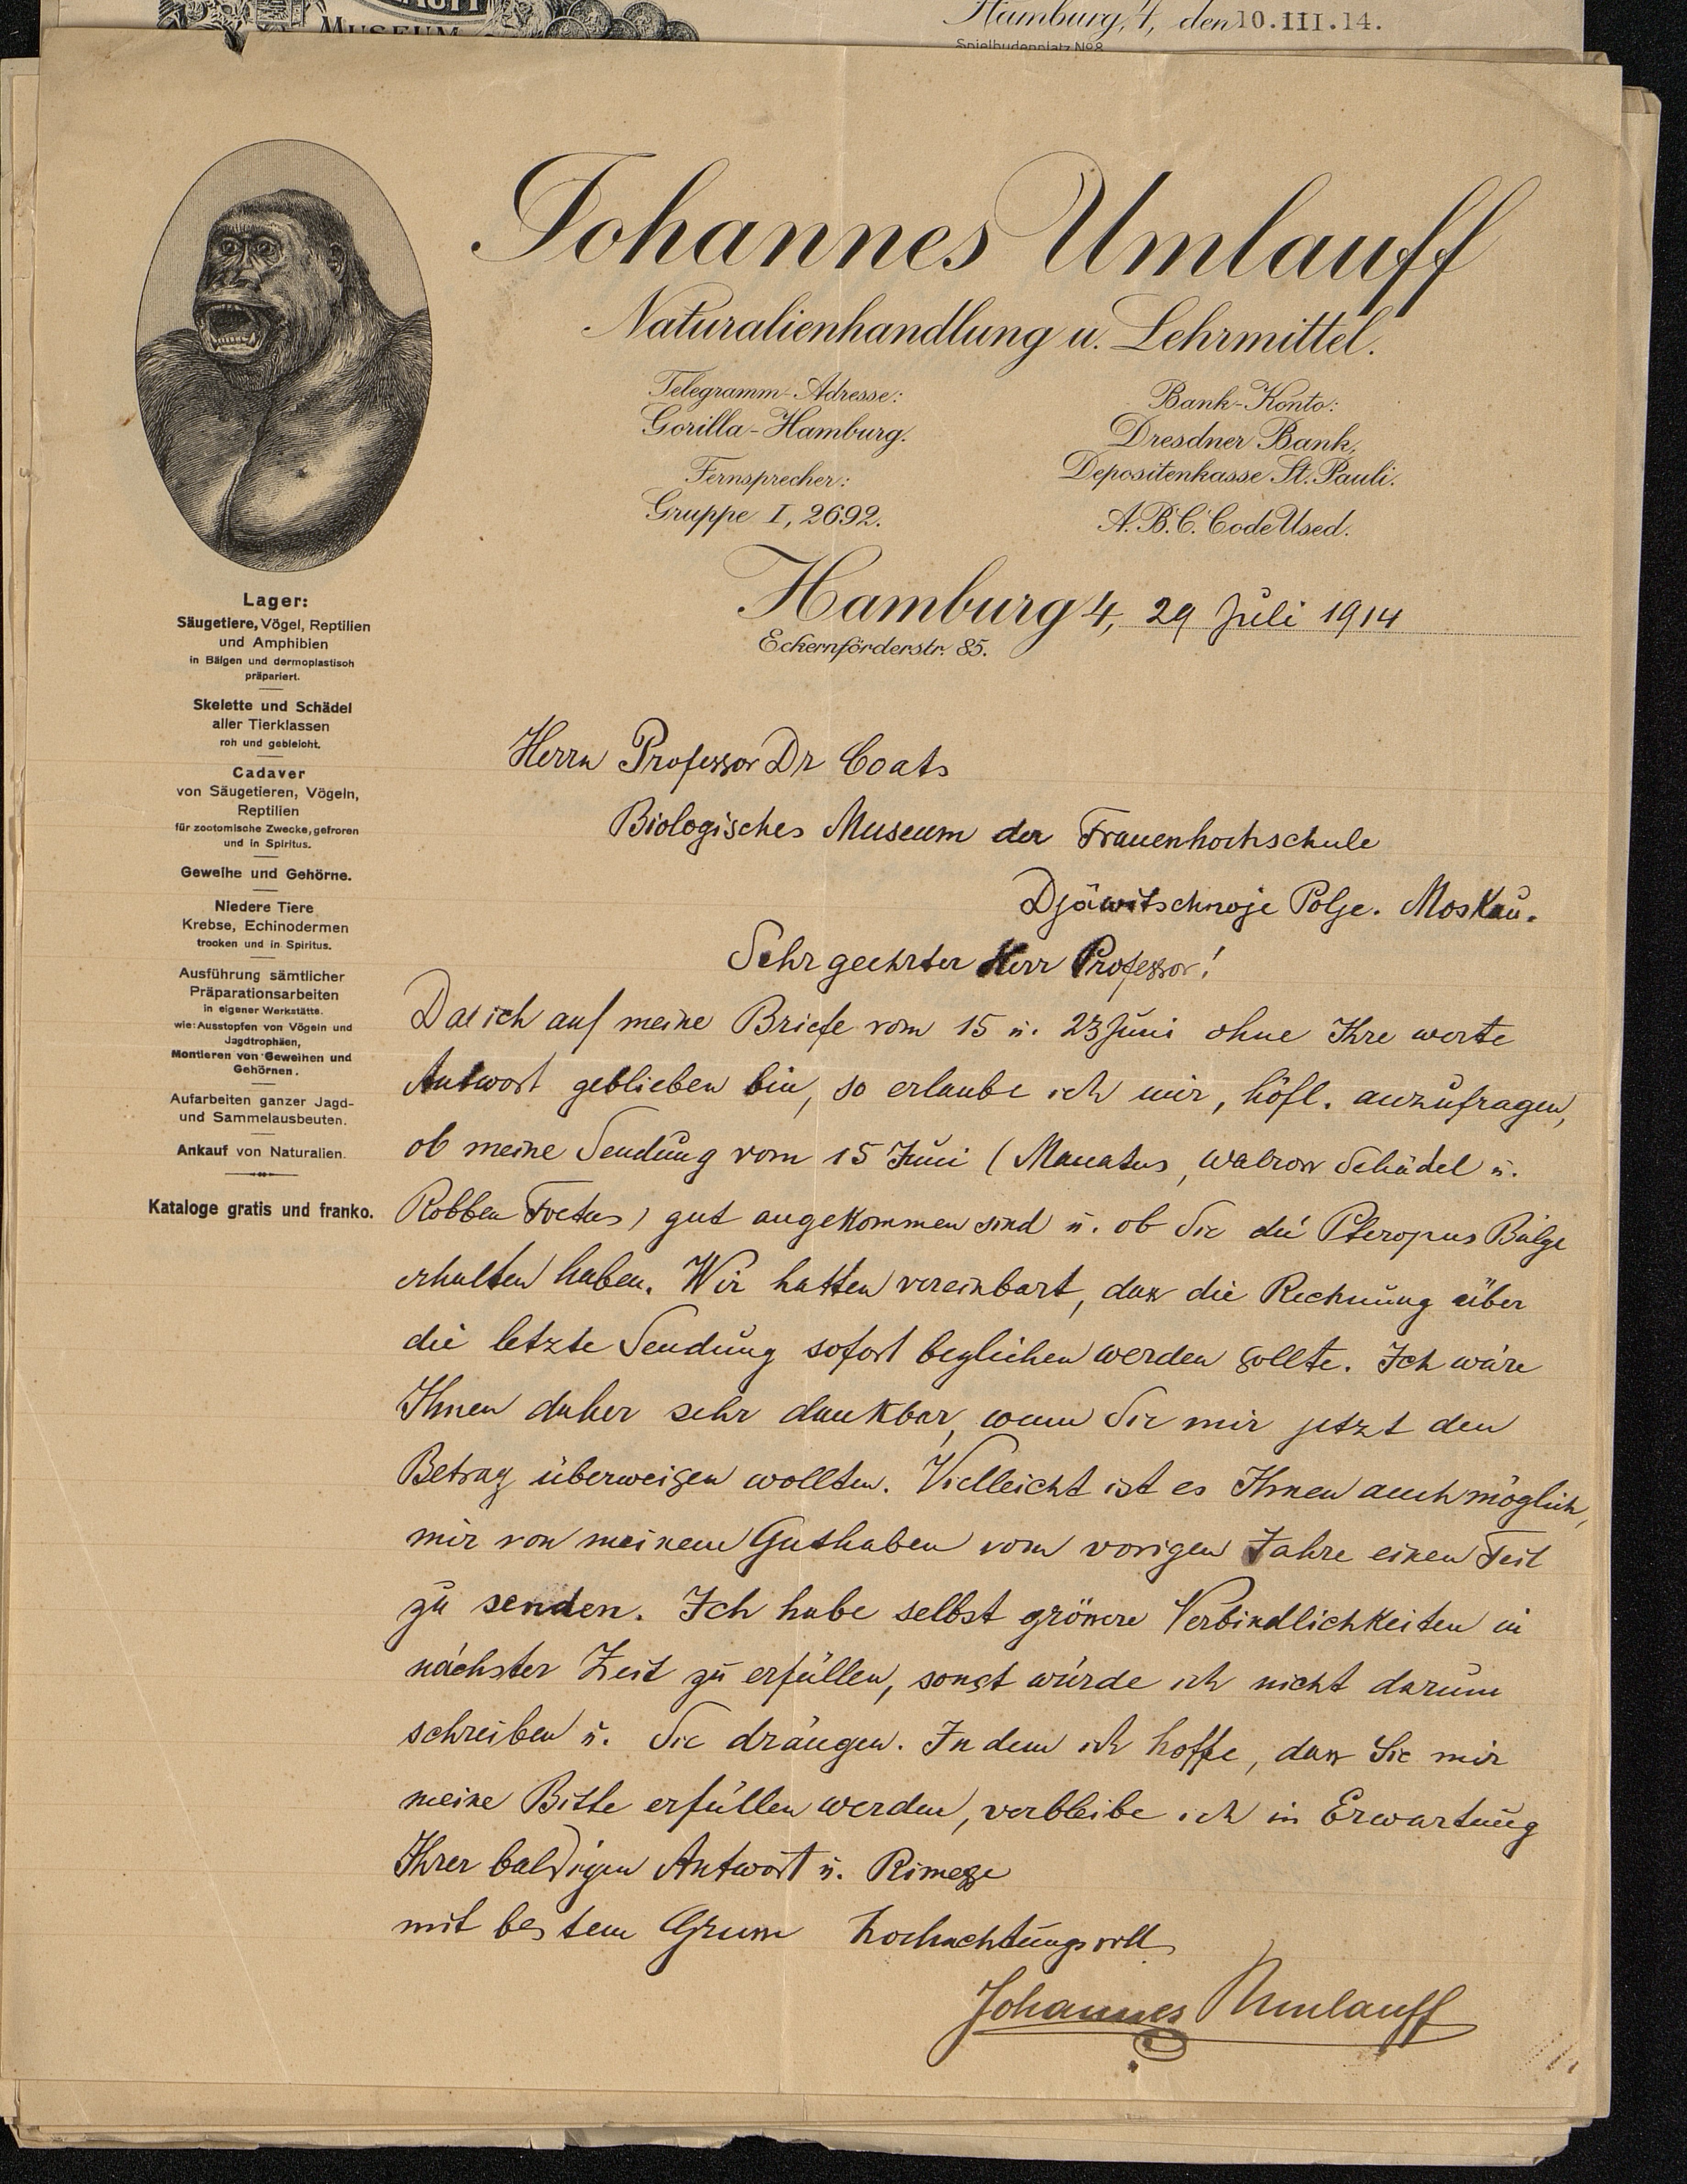 MUSEUM
Hamburg, 4, den 10.III.14.
Spielbudenplatz No 8
Johannes Umlauff
Naturalienhandlung u. Lehrmittel.
Telegramm-Adresse:
Gorilla-Hamburg.
Fernsprecher:
Gruppe I, 2692.
Bank-Konto:
Dresdner Bank,
Depositenkasse St. Pauli.
A.B.C. Code Used.
Hamburg 4, 29 Juli 1914
Eckernförderstr. 85.
Lager:
Säugetiere, Vögel, Reptilien
und Amphibien
in Bälgen und dermoplastisch
präpariert.
Skelette und Schädel
aller Tierklassen
roh und gebleicht.
Cadaver
von Säugetieren, Vögeln,
Reptilien
für zootomische Zwecke, gefroren
und in Spiritus.
Geweihe und Gehörne.
Niedere Tiere
Krebse, Echinodermen
trocken und in Spiritus.
Ausführung sämtlicher
Präparationsarbeiten
in eigener Werkstätte.
wie: Ausstopfen von Vögeln und
Jagdtrophäen,
Montieren von Geweihen und
Gehörnen.
Aufarbeiten ganzer Jagd-
und Sammelausbeuten.
Ankauf von Naturalien.
Kataloge gratis und franko.
Herrn Professor Dr Coats
Biologisches Museum der Frauenhochschule
Djäwitschnoje Polje. Moskau.
Sehr geehrter Herr Professor!
Da ich auf meine Briefe vom 15 u. 23 Juni ohne Ihre werte
Antwort geblieben bin, so erlaube ich mir, höfl. anzufragen,
ob meine Sendung vom 15 Juni (Manatus, Walross Schädel u.
Robben Foetus) gut angekommen sind u. ob Sie die Pteropus Bälge
erhalten haben. Wir hatten vereinbart, dass die Rechnung über
die letzte Sendung sofort beglichen werden sollte. Ich wäre
Ihnen daher sehr dankbar, wenn Sie mir jetzt den
Betrag überweisen wollten. Vielleicht ist es Ihnen auch möglich,
mir von meinem Guthaben vom vorigen Jahre einen Teil
zu senden. Ich habe selbst grössere Verbindlichkeiten in
nächster Zeit zu erfüllen, sonst würde ich nicht darum
schreiben u. Sie drängen. In dem ich hoffe, dass Sie mir
meine Bitte erfüllen werden, verbleibe ich in Erwartung
Ihrer baldigen Antwort u. Rimesse
mit bestem Gruss hochachtungsvoll
Johannes Umlauff